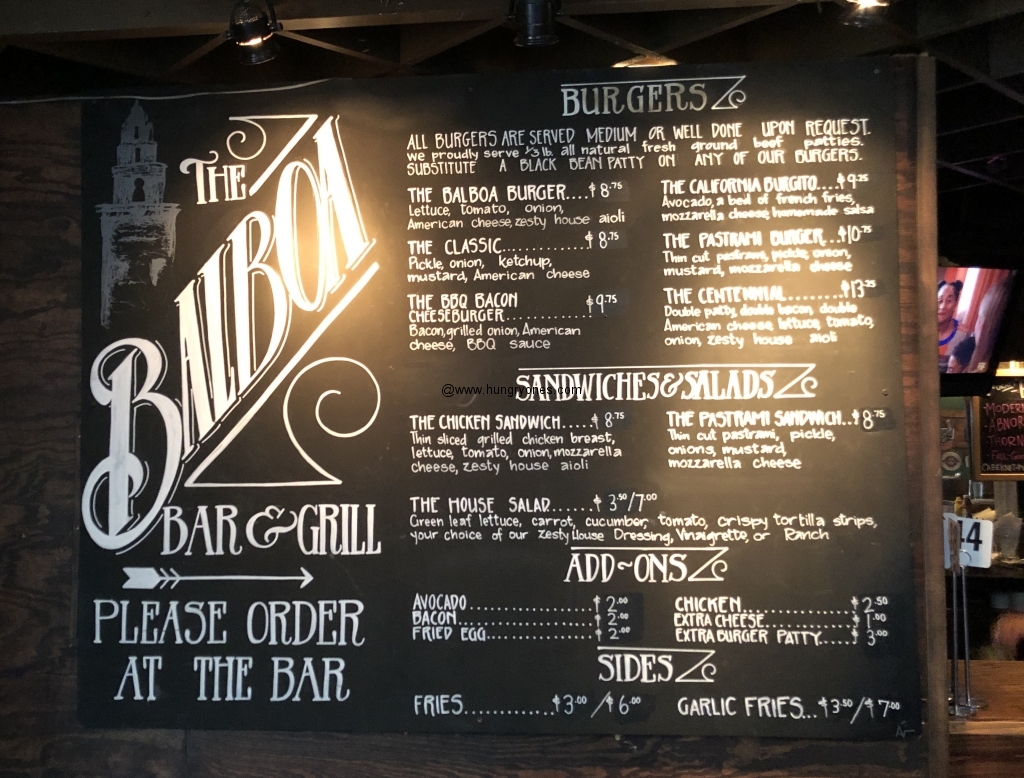 THE
BALBOA
BAR & GRILL
PLEASE ORDER
AT THE BAR
BURGERS
ALL BURGERS ARE SERVED MEDIUM OR WELL DONE UPON REQUEST.
we proudly serve 1/3 lb. all natural fresh ground beef patties.
SUBSTITUTE A BLACK BEAN PATTY ON ANY OF OUR BURGERS.
THE BALBOA BURGER....$8.75
Lettuce, Tomato, onion,
American cheese, zesty house aioli
THE CLASSIC............$8.75
Pickle, onion, ketchup,
mustard, American cheese
THE BBQ BACON
CHEESEBURGER............$9.75
Bacon, grilled onion, American
cheese, BBQ sauce
THE CALIFORNIA BURGITO....$9.25
Avocado, a bed of french fries,
mozzarella cheese, homemade salsa
THE PASTRAMI BURGER...$10.75
Thin cut pastrami, pickle, onion,
mustard, mozzarella cheese
THE CENTENNIAL........$13.25
Double patty, double bacon, double
American cheese, lettuce, tomato,
onion, zesty house aioli
@www.hungryones.com
SANDWICHES & SALADS
THE CHICKEN SANDWICH.....$8.75
Thin sliced grilled chicken breast,
lettuce, tomato, onion, mozzarella
cheese, zesty house aioli
THE PASTRAMI SANDWICH...$8.75
Thin cut pastrami, pickle,
onions, mustard,
mozzarella cheese
THE HOUSE SALAD......$3.50/7.00
Green leaf lettuce, carrot, cucumber, tomato, crispy tortilla strips,
your choice of our zesty House Dressing, Vinaigrette, or Ranch
ADD~ONS
AVOCADO..................$2.00
BACON....................$2.00
FRIED EGG................$2.00
CHICKEN................$2.50
EXTRA CHEESE.............$1.00
EXTRA BURGER PATTY.....$3.00
SIDES
FRIES............$3.00/$6.00
GARLIC FRIES...$3.50/$7.00
MODERN
ABNOR
THORN
44